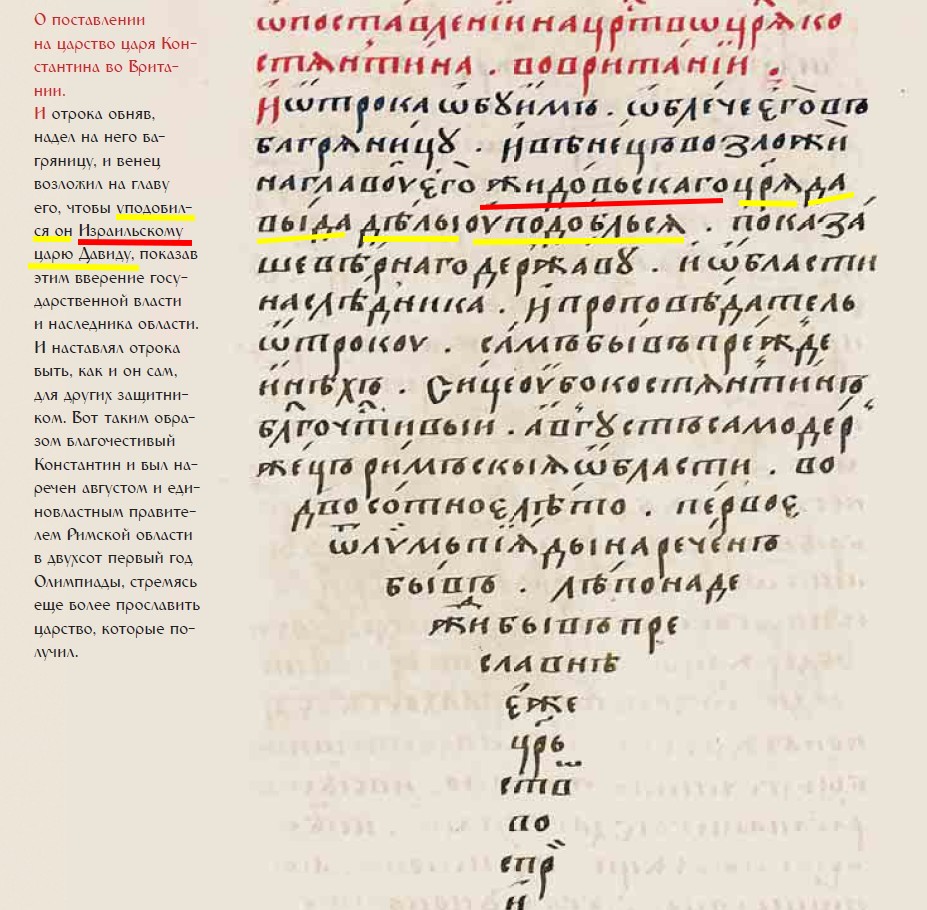 О поставлении
на царство царя Кон-
стантина во Врита-
нии.
И отрока обняв,
надел на него ба-
гряницу, и венец
возложил на главу
его, чтобы уподобил-
ся он Израильскому
царю Давиду, показав
этим вверение госу-
дарственной власти
и наследника области.
И наставлял отрока
быть, как и он сам,
для других защитни-
ком. Вот таким обра-
зом благочестивый
Константин и был на-
речен августом и еди-
новластным правите-
лем Римской области
в двухсот первый год
Олимпиады, стремясь
еще более прославить
царство, которые по-
лучил.
ѿпоставленїинацр҃твѡцр҃ѧко
стѧнтина . вовританїи .
Иѿтрока ѡбꙋимъ . ѡблечеєгⷪ҇въ
багрѧницꙋ . ивѣнецъвозложи
наглавоуєгⷪ҇ жидовьскагоцр҃ѧда
выда дѣлыоуподоблься . показа
шевѣрнагодержавꙋ . иѡбласти
наслѣдника . ипроповѣдатель
ѿтрокоу . самъбывъпрежде
инѣхъ . Сицеоубокостѧнтинъ
бл҃гочтⷭ҇ивыи . авгꙋстъсамодер
жецъримъскыѧѡбласти . во
двосотноєлѣто . первоє
ѿлѵмьпїѧдынареченъ
бывъ . лѣпонаде
жⷣибывъпре
славнѣ
єже
цр҃ь
ство
во
спр
и